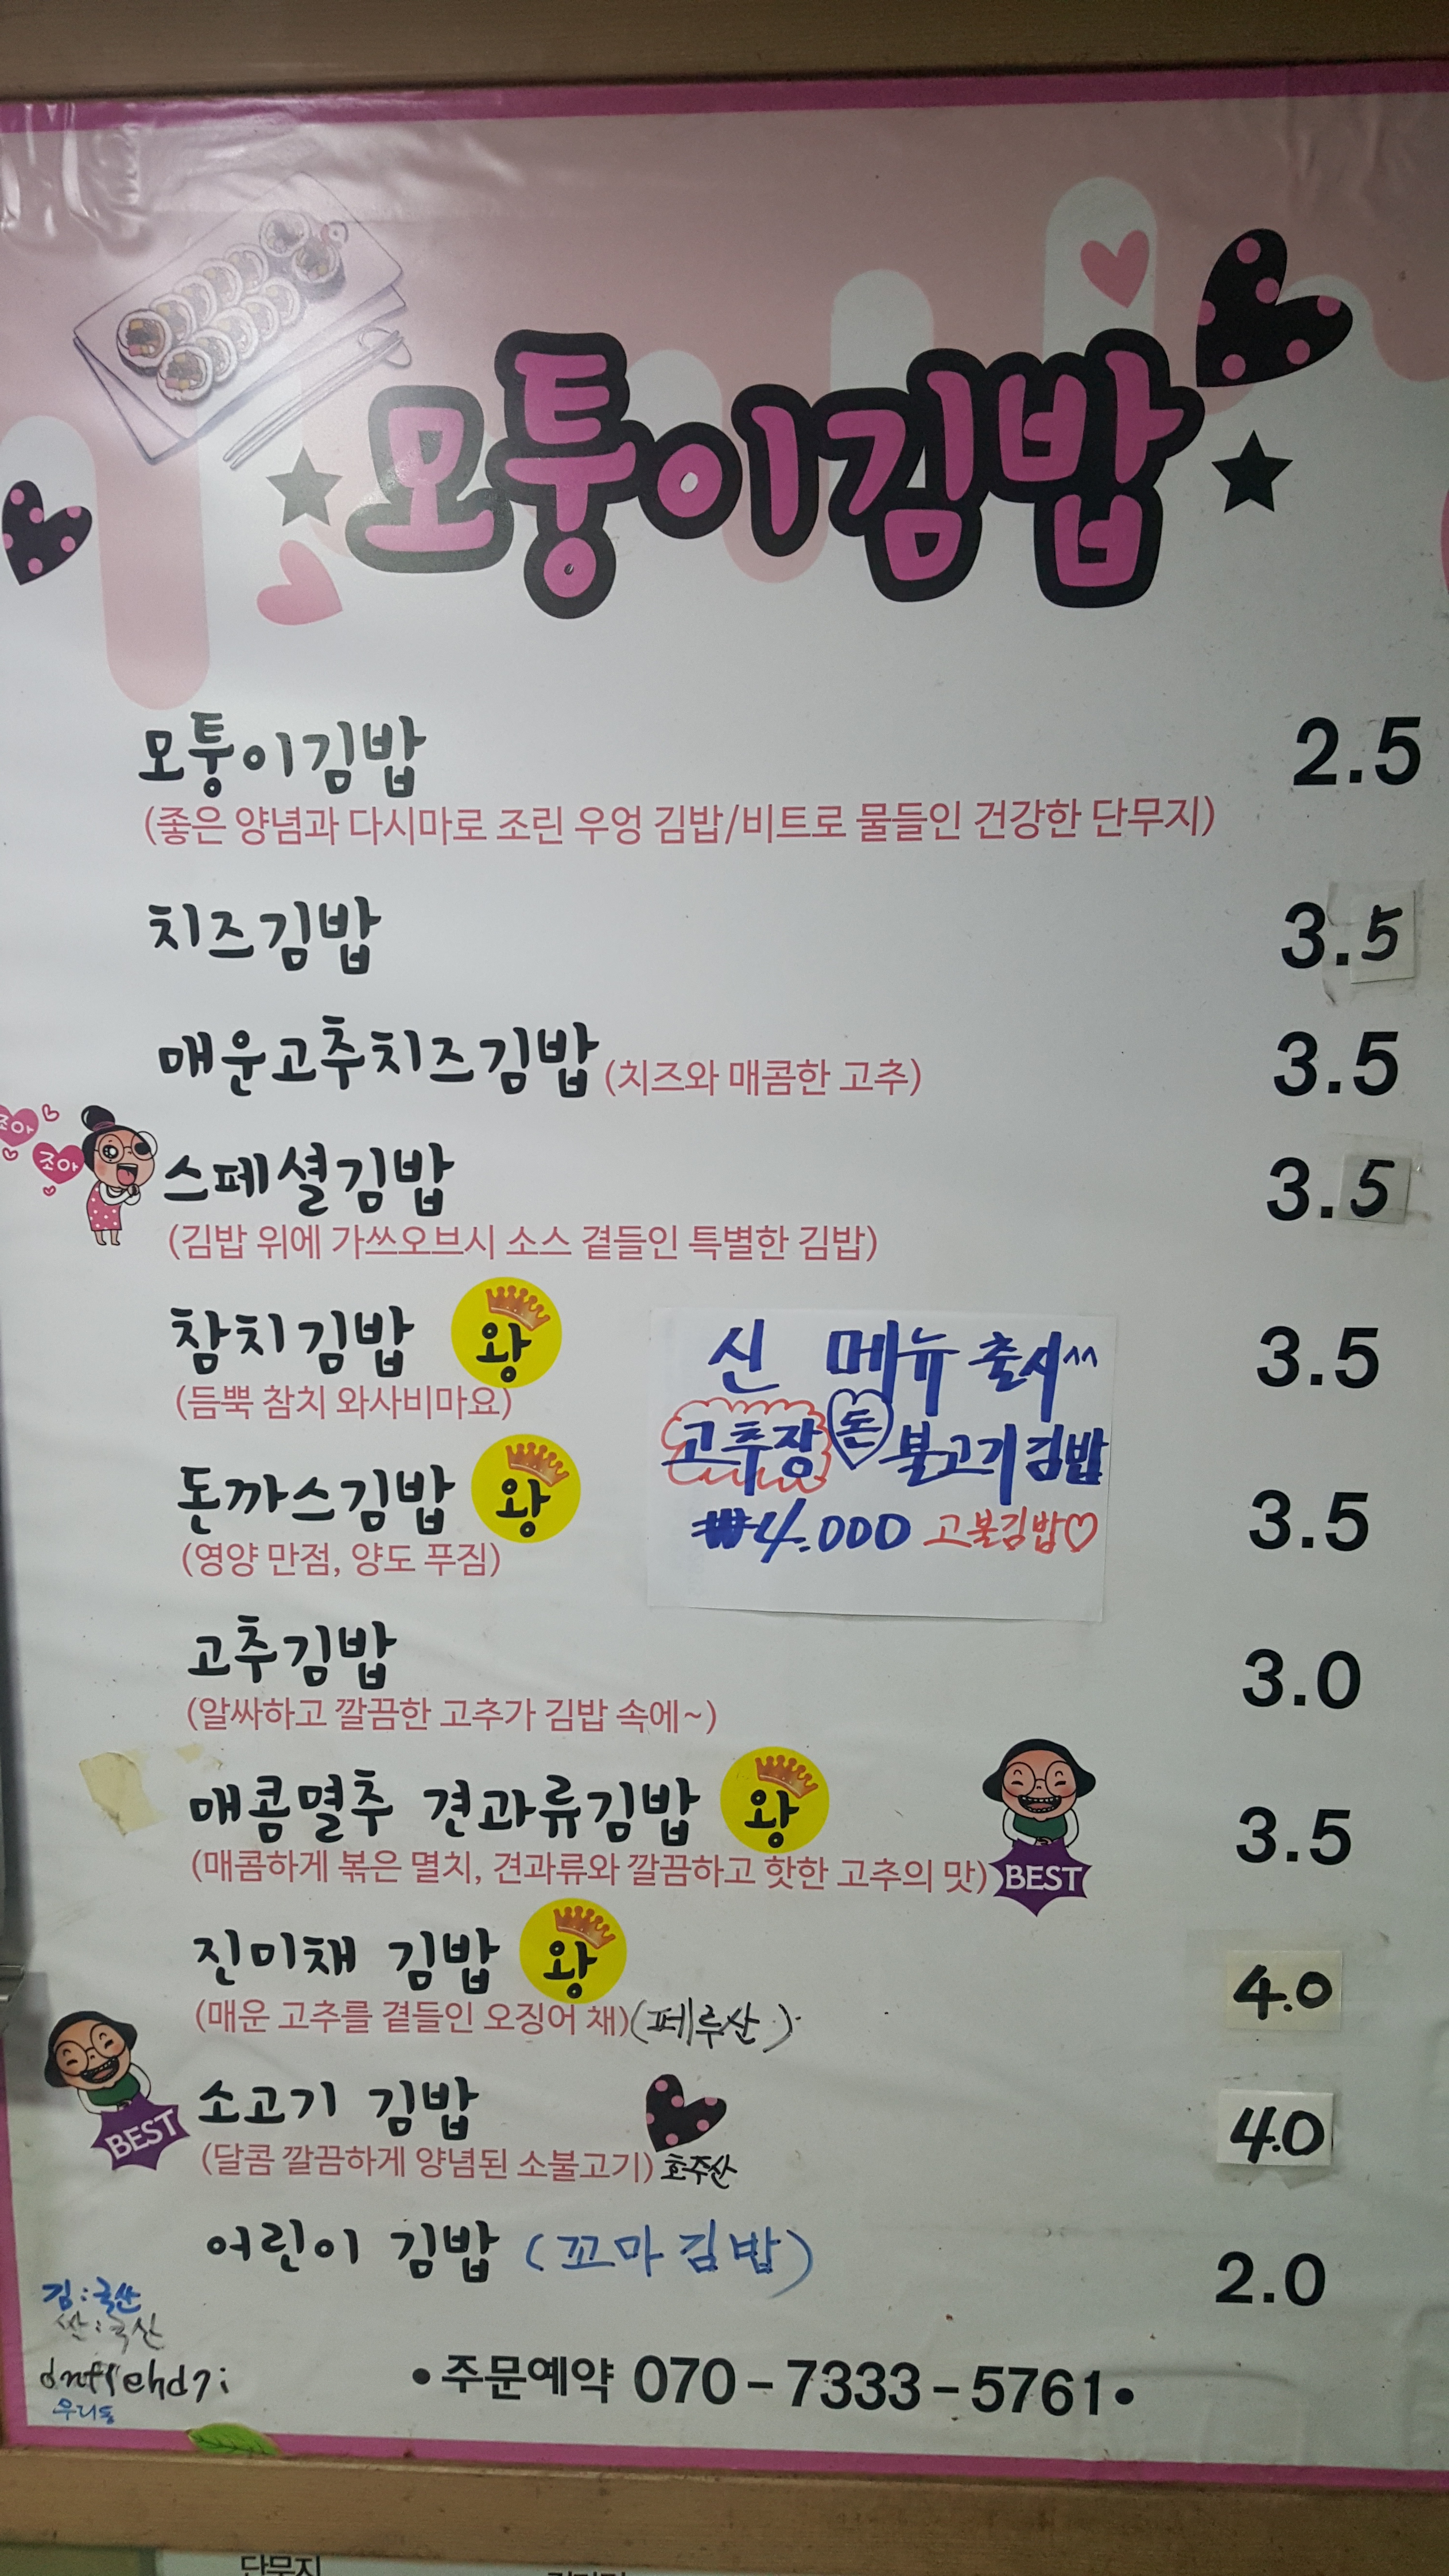 모퉁이김밥
모퉁이김밥 2.5
(좋은 양념과 다시마로 조린 우엉 김밥/비트로 물들인 건강한 단무지)
치즈김밥 3.5
매운고추치즈김밥 (치즈와 매콤한 고추) 3.5
조아
조아
스페셜김밥 3.5
(김밥 위에 가쓰오브시 소스 곁들인 특별한 김밥)
참치김밥 왕 3.5
(듬뿍 참치 와사비마요)
신 메뉴 출시^^
고추장 돈 불고기김밥
₩4.000 고불김밥♡
돈까스김밥 왕 3.5
(영양 만점, 양도 푸짐)
고추김밥 3.0
(알싸하고 깔끔한 고추가 김밥 속에~)
매콤멸추 견과류김밥 왕 3.5
(매콤하게 볶은 멸치, 견과류와 깔끔하고 핫한 고추의 맛) BEST
진미채 김밥 왕 4.0
(매운 고추를 곁들인 오징어 채) (페루산)
BEST
소고기 김밥 4.0
(달콤 깔끔하게 양념된 소불고기) 호주산
어린이 김밥 (꼬마김밥) 2.0
김:국산
쌀:국산
• 주문예약 070-7333-5761 •
단무지